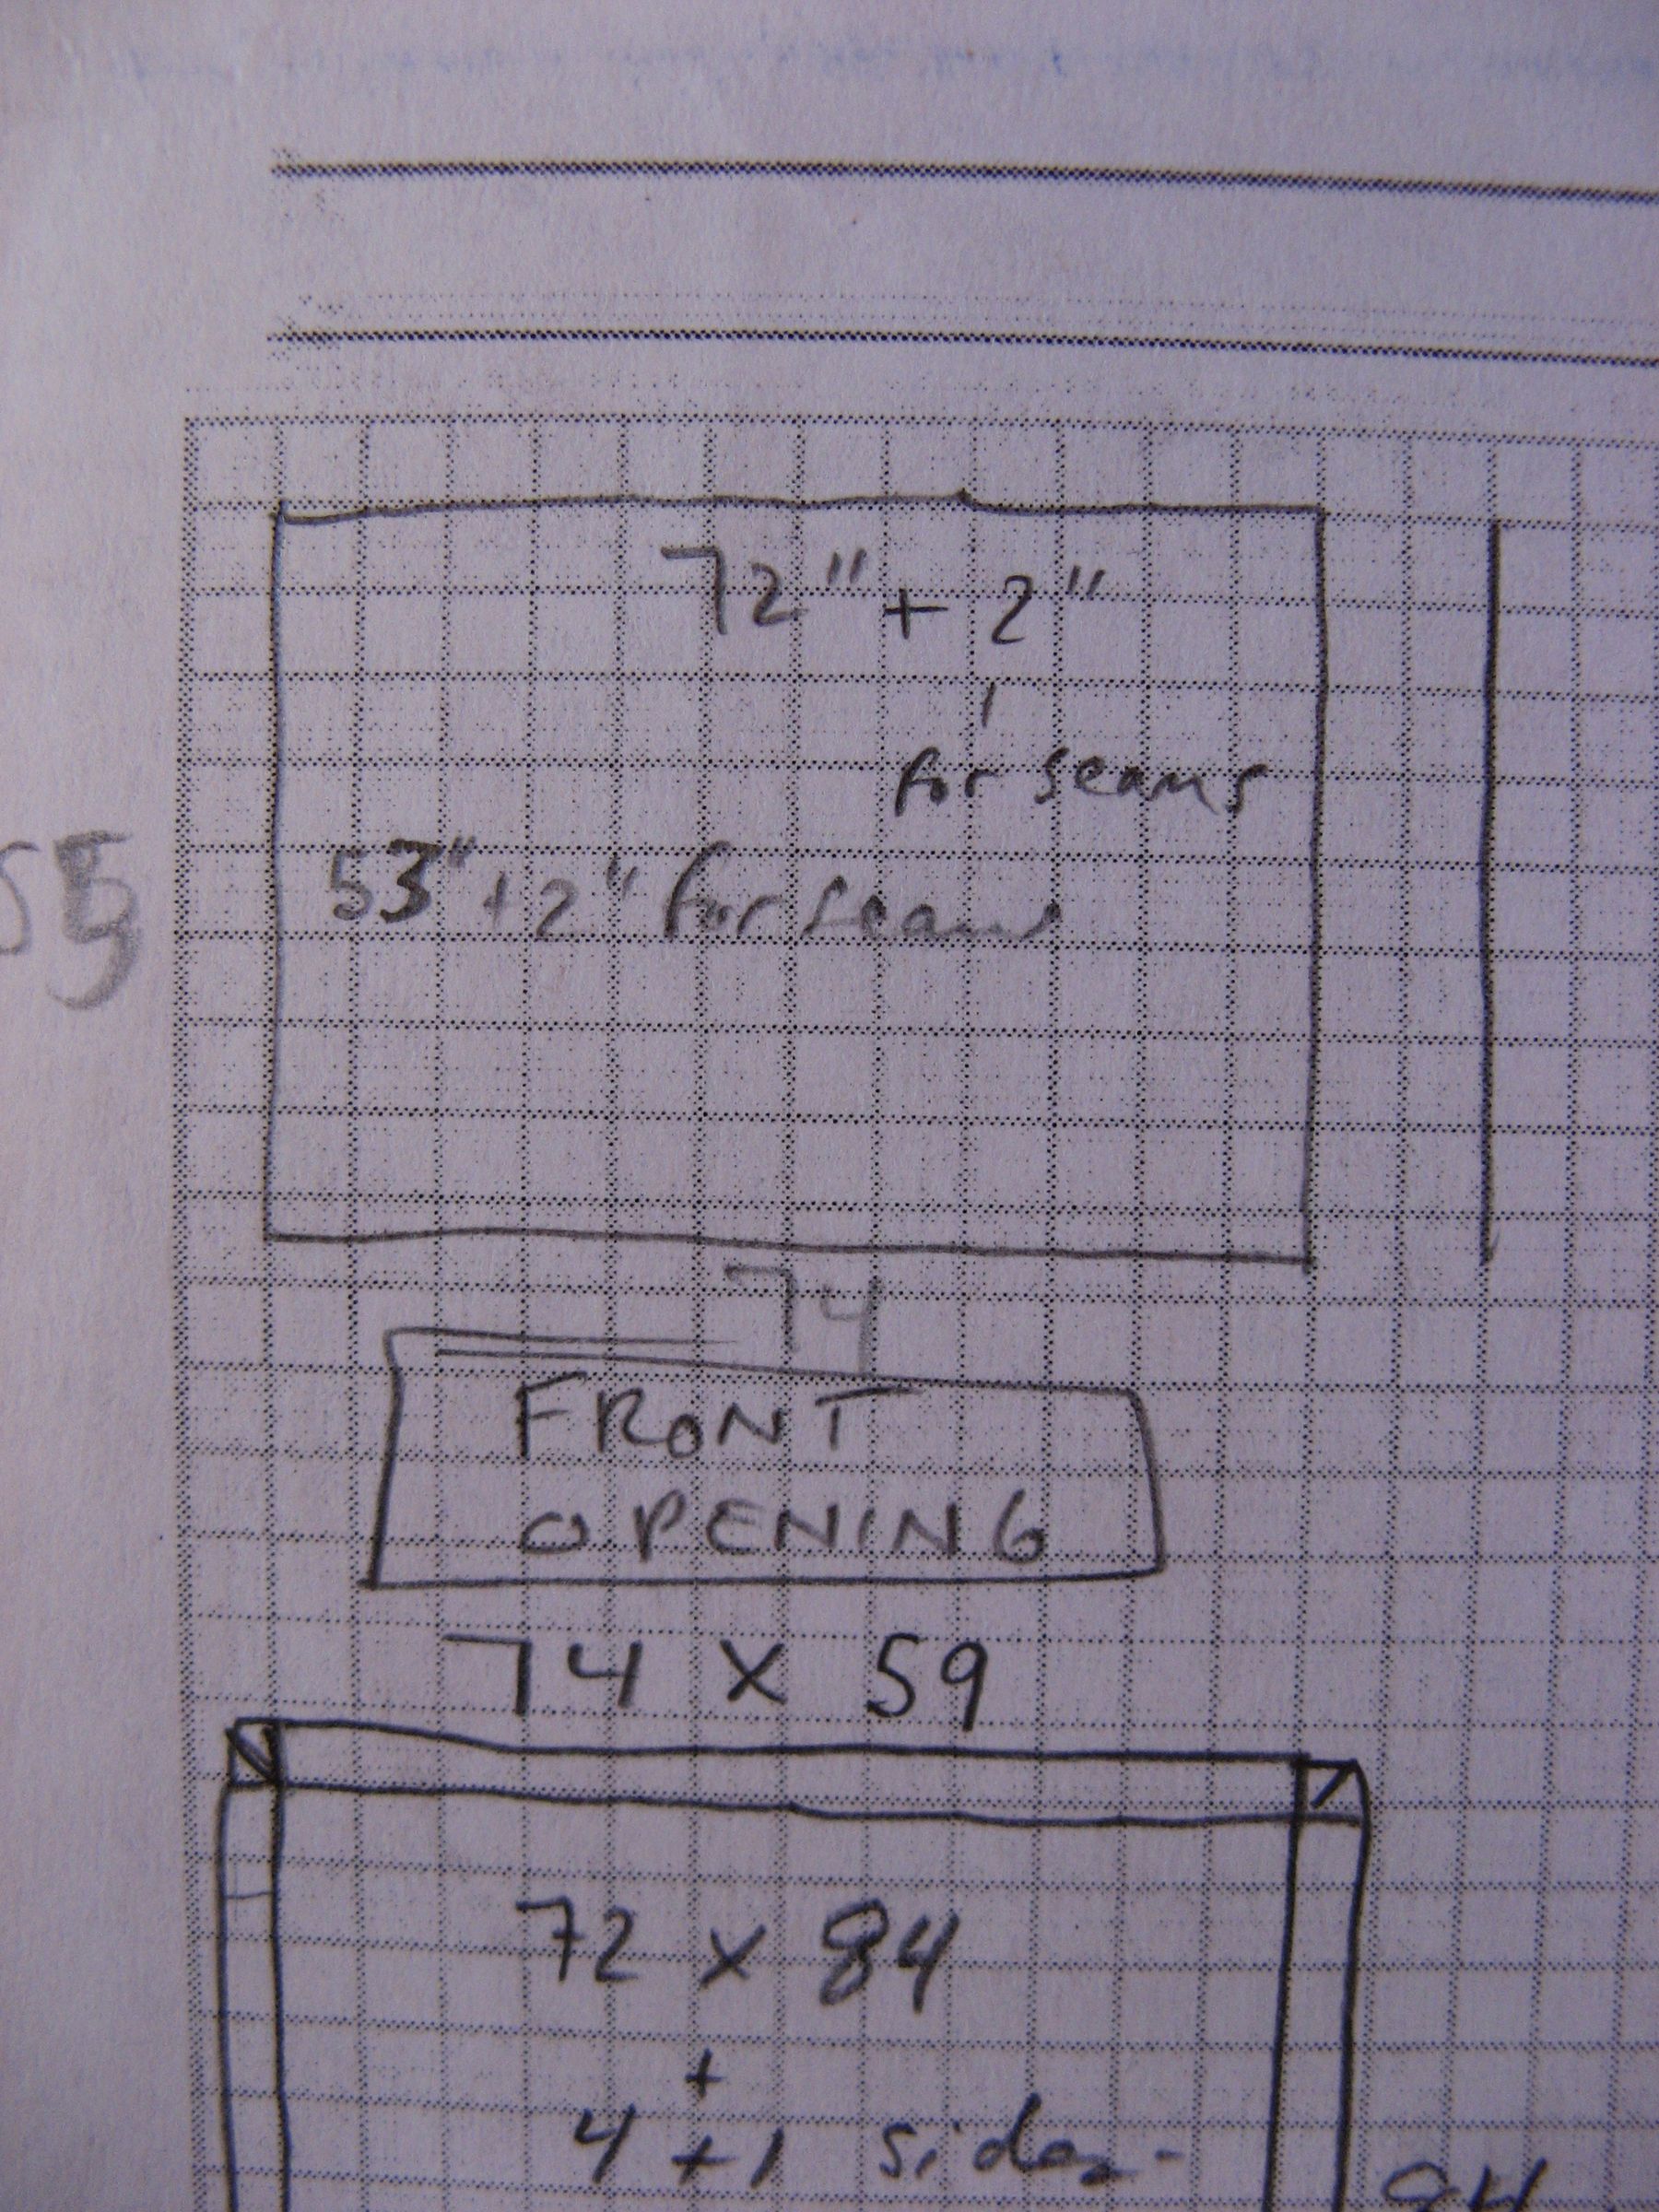 72" + 2"
for seams
55
53" + 2" for seams
74
FRONT
OPENING
74 X 59
72 x 84
+
4 + 1 sides